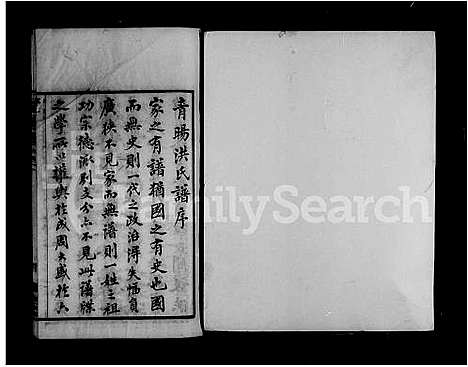 青暘洪氏譜序
家之有譜猶國之有史也國
而無史則一代之政治得失幅員
廣狹不見家而無譜則一姓之祖
功宗德派別支分亦不見此譜牒
之學所以權輿於成周大盛於六
FamilySearch